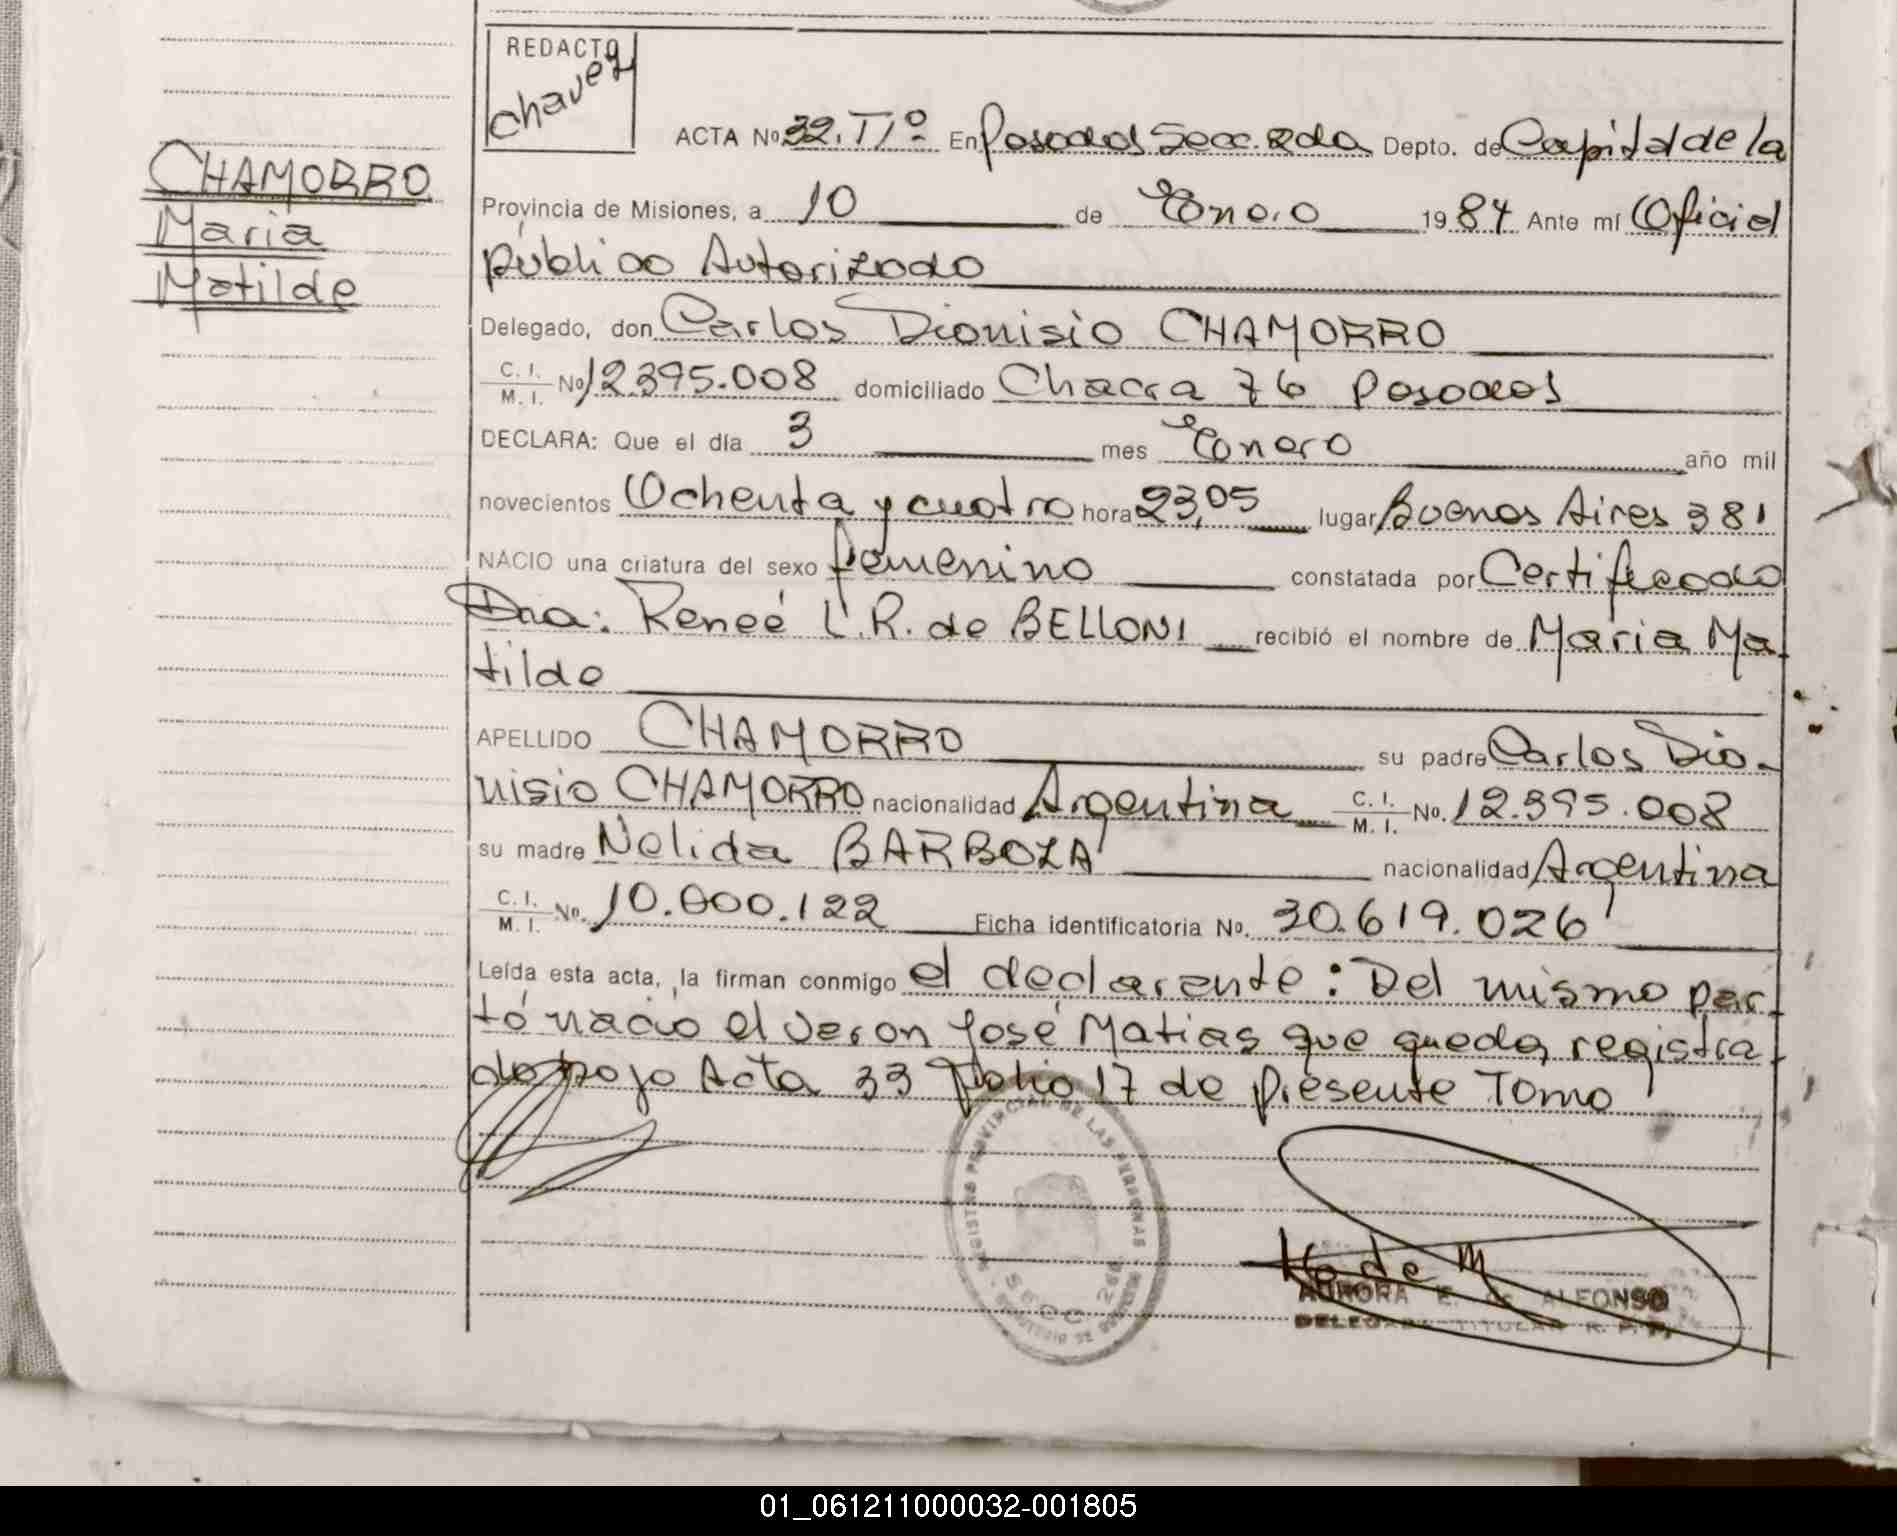 REDACTO
Chavez
ACTA Nº 32. Tº1º En Posadas Secc. 2da Depto. de Capital de la
CHAMORRO
Maria
Matilde
Provincia de Misiones, a 10 de Enero 1984 Ante mí Oficial
público Autorizado
Delegado, don Carlos Dionisio CHAMORRO
C. I. / M. I. Nº 12.395.008 domiciliado Chacra 76 Posadas
DECLARA: Que el día 3 mes Enero año mil
novecientos Ochenta y cuatro hora 23,05 lugar Buenos Aires 381
NACIO una criatura del sexo femenino constatada por Certificado
Dra: Reneé L.R. de BELLONI recibió el nombre de Maria Ma-
tilde
APELLIDO CHAMORRO su padre Carlos Dio-
nisio CHAMORRO nacionalidad Argentina C. I. / M. I. Nº. 12.395.008
su madre Nelida BARBOZA nacionalidad Argentina
C. I. / M. I. Nº. 10.000.122 Ficha identificatoria Nº. 30.619.026
Leída esta acta, la firman conmigo el declarante: Del mismo par-
tó nacio el varon José Matias que queda registra-
do bajo Acta 33 folio 17 de presente Tomo
REGISTRO PROVINCIAL DE LAS PERSONAS
SECC 2da
AURORA E. de ALFONSO
DELEGADA TITULAR R. P. P.
01_061211000032-001805